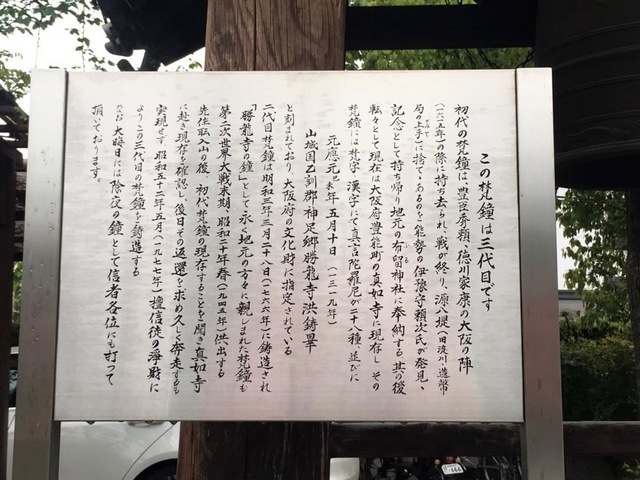 この梵鐘は三代目です
初代の梵鐘は、豊臣秀頼、徳川家康の大阪の陣
(一六一五年)の際に持ち去られ、戦が終り、源八堤(旧淀川・造幣
局の上手)に捨てあるのを能勢の伊豫守頼次氏が発見、
記念として持ち帰り地元の布留神社に奉納する 其の後
転々として現在は大阪府豊能町の真如寺に現存し その
梵鐘には梵字・漢字にて真言陀羅尼が二十八種、並びに
元應元己未年五月十日(一三一九年)
山城国乙訓郡神足郷勝龍寺洪鋳畢
と刻まれており、大阪府の文化財に指定されている
二代目梵鐘は明和三年三月二十八日(一七六六年)に鋳造され
「勝龍寺の鐘」として永く地元の方々に親しまれた梵鐘も
第二次世界大戦末期、昭和二十年春(一九四五年)供出する
先住職入山の後、初代梵鐘の現存することを聞き真如寺
に赴き現存を確認、後日その返還を求め久しく奔走するも
実現せず 昭和五十二年五月(一九七七年)檀信徒の浄財に
よりこの三代目の梵鐘を鋳造する
なお 大晦日には除夜の鐘として信者各位にも打って
頂いております。